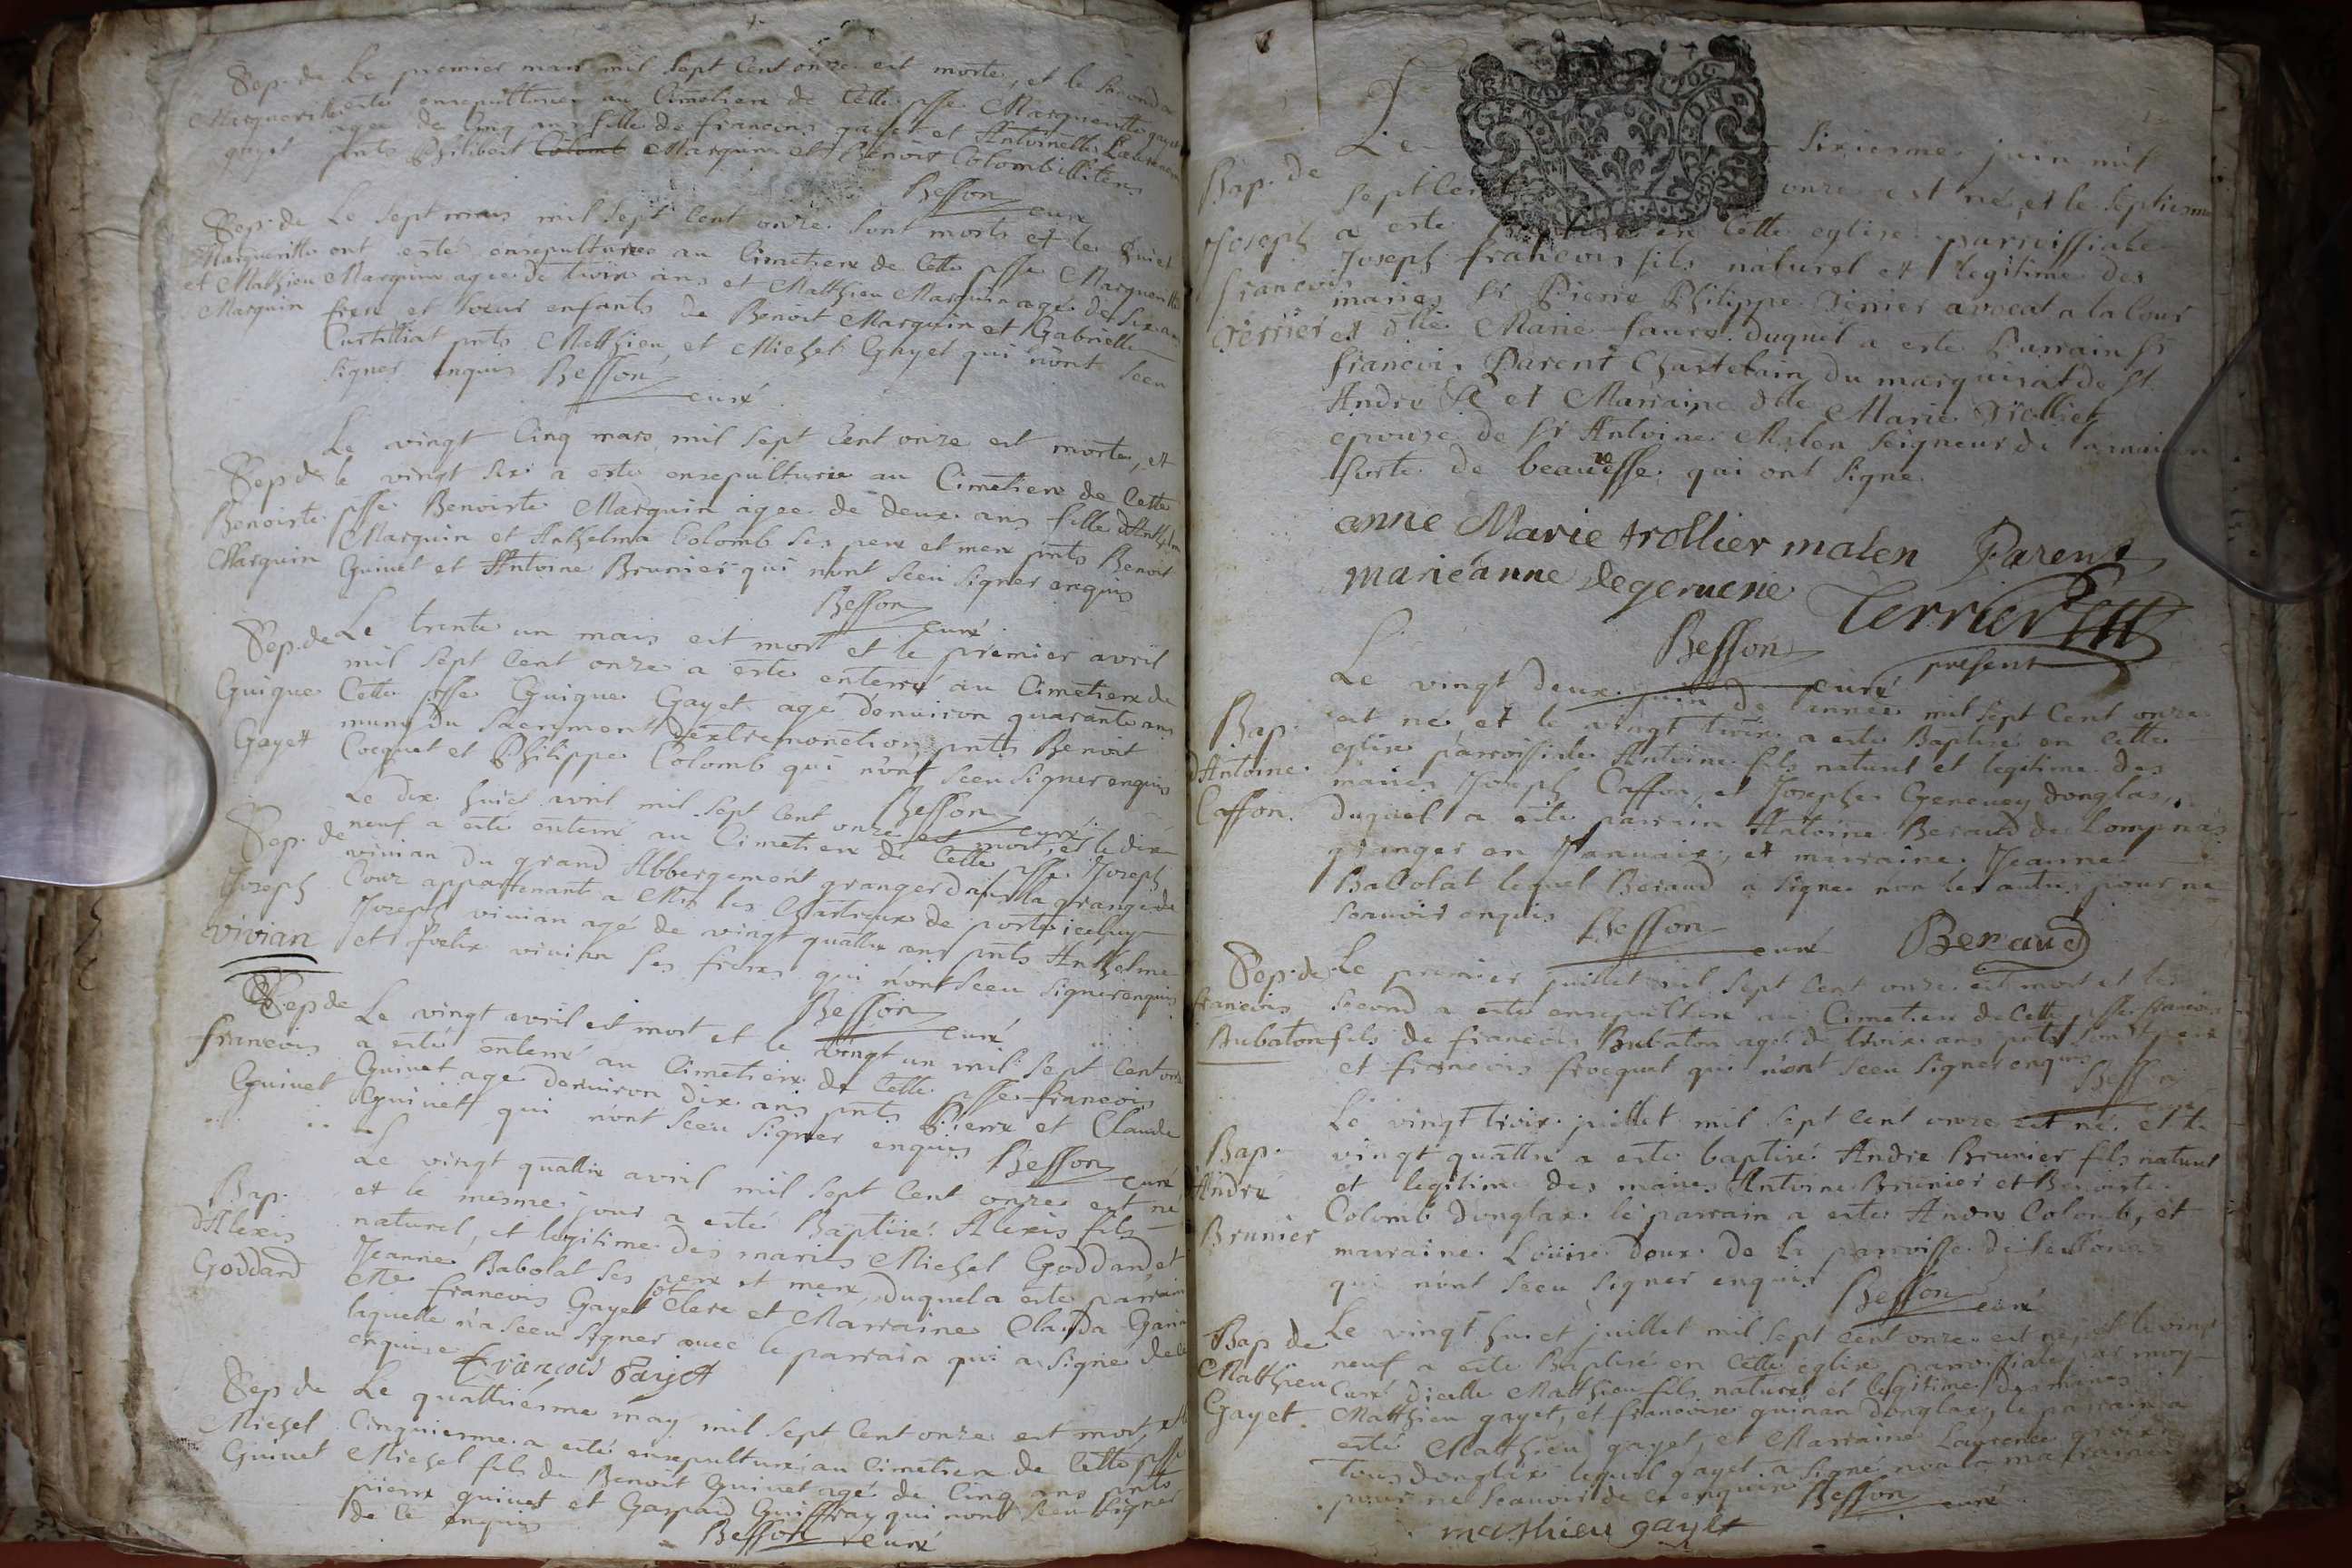 Sep. de Le premier mars mil sept cent onze est morte, et le second a
Margueritte esté ensepulturée au Cimetiere de cette psse Marguerite gayet
gayet agée de cinq ans fille de francois gayet et Antoinette
pnts Philibert Colomb Marquin et Benoist Colomb illiterez
Besson curé
Sep. de Le sept mars mil sept cent onze sont morts et le huict
Marguerille ont esté ensepulturez au Cimetiere de cette psse Marguerille
et Mathieu Marquin agée de trois ans et Matthieu Marquin agé de six ans
Marquin frere et soeur enfants de Benoit Marquin et Gabrielle
Curtilliat pnts Matthieu et Michel Gayet qui n'ont sceu
signer enquis Besson curé
Le vingt cinq mars mil sept cent onze est morte, et
Sep de le vingt six a esté ensepulturée au Cimetiere de cette
Benoiste psse Benoiste Marquin agée de deux ans fille d'Anthelme
Marquin Marquin et Anthelma Colomb ses pere et mere pnts Benoit
Guinet et Antoine Brunier qui n'ont sceu signer enquis
Besson curé
Sep. de Le trente un mars est mort et le premier avril
mil sept cent onze a esté enterré au Cimetiere de
Guigue cette psse Guigue Gayet agé d'environ quarante ans
Gayet muny du sacrement d'extremonction pnts Benoit
Cocquet et Philippe Colomb qui n'ont sceu signer enquis
Besson curé
Le dix huict avril mil sept cent onze est mort, et le dix
Sep. de neuf a esté enterré au Cimetiere de cette psse Joseph
vivian du grand Abbergement granger dans la grange de
Joseph Cour appartenant a Mrs les Chartreux de porte iceluy
vivian Joseph vivian agé de vingt quattre ans pnts Anthelme
et foelix vivian ses freres qui n'ont sceu signer enquis
Besson curé
Sep de Le vingt avril est mort et le vingt un mil sept cent onze
francois a esté enterré au Cimetiere de cette psse francois
Guinet Guinet agé d'environ dix ans pnts Pierre et Claude
Guinet qui n'ont sceu signer enquis Besson curé
Le vingt quattre avril mil sept cent onze est né
Bap. et le mesme jour a esté Baptisé Alexis fils
d'Alexis naturel, et legitime des mariés Michel Goddard, et
Goddard Jeanne Babolat ses pere et mere, duquel a esté parrain
Me francois Gayet clerc et Marraine Clauda
laquelle n'a sceu signer avec le parrain qui a signé de ce
enquise françois Gayet
Sep de Le quattriésme may mil sept cent onze est mort, et le
Michel Cinquiesme a esté ensepulturé au Cimetiere de cette psse
Guinet Michel fils de Benoit Guinet agé de cinq ans pnts
pierre guinet et Gaspard Guiffray qui n'ont sceu signer
de ce enquis Besson curé
Le sixiesme juin mil
Bap. de sept cent onze est né, et le septiesme
Joseph a esté Baptisé en cette eglise parroissiale
francois Joseph francois fils naturel et legitime des
Terrier mariés Sr Pierre Philippe Terrier avocat a la Cour
et dlle Marie faure duquel a esté Parrain Sr
francois Parent Chastelain du marquisat de St
André et Marraine dlle Marie Trollier
epouse de Sr Antoine Malen seigneur de la maison
forte de beauvesse qui ont signé
anne Marie trollier malen Parent
marieánne degeruesie Terrier
Besson curé present
Le vingt deux juin de l'année mil sept cent onze
Bap. est né et le vingt trois a esté Baptisé en cette
d'Antoine eglise parroissiale Antoine fils naturel et legitime des
Caffon. mariés Joseph Caffon, et Josephe Genevey donglas,
duquel a esté parrain Antoine Beraud de Lompnas
granger en Januais, et marraine Jeanne
Babolat lequel Beraud a signé non les autres pour ne
scauoir enquis Besson curé Beraud
Sep. de Le premier juillet mil sept cent onze est mort et le
francois second a esté ensepulturé au Cimetiere de cette psse francois
Bubaton fils de francois Bubaton agé de trois ans pnts son pere
et francois frocquet qui n'ont sceu signer enquis
Besson curé
Le vingt trois juillet mil sept cent onze est né et le
Bap. vingt quattre a esté baptisé André Brunier fils naturel
d'André et legitime des mariés Antoine Brunier et Benoiste
Brunier Colomb donglas le parrain a esté André Colomb, et
marraine Louise doux de la parroisse de
qui n'ont sceu signer enquis Besson curé
Bap de Le vingt huict juillet mil sept cent onze est né, et le vingt
Matthieu neuf a esté Baptisé en cette eglise parroissiale par moy
Gayet. Curé d'icelle Matthieu fils naturel et legitime des mariés
Matthieu gayet, et francoise guinan donglas, le parrain a
esté Matthieu gayet, et Marraine Laurence
tous donglas lequel gayet a signé non la marraine
pour ne scauoir de ce enquise Besson curé
mathieu gayet